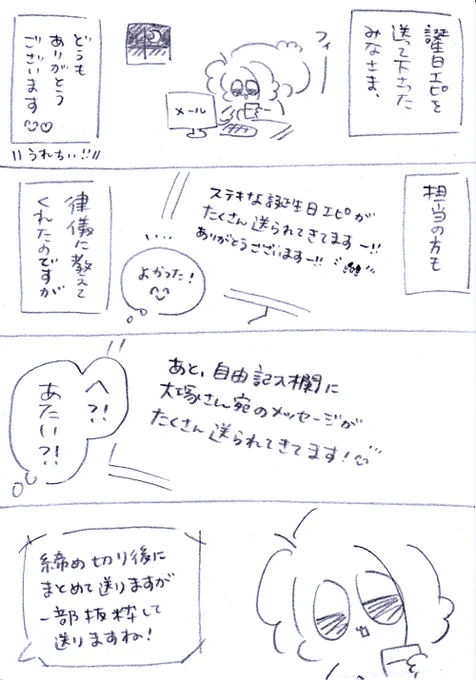 誕生日エピを
送って下さった
みなさま、
フィー
メール
どうも
ありがとう
ございます
うれちい!!
担当の方も
ステキな誕生日エピが
たくさん送られてきてますー!!
ありがとうございますー!!
よかった!
律儀に教えて
くれたのですが
あと、自由記入欄に
大塚さん宛のメッセージが
たくさん送られてきてます!
へ?!
あたい?!
締め切り後に
まとめて送りますが
一部抜粋して
送りますね!